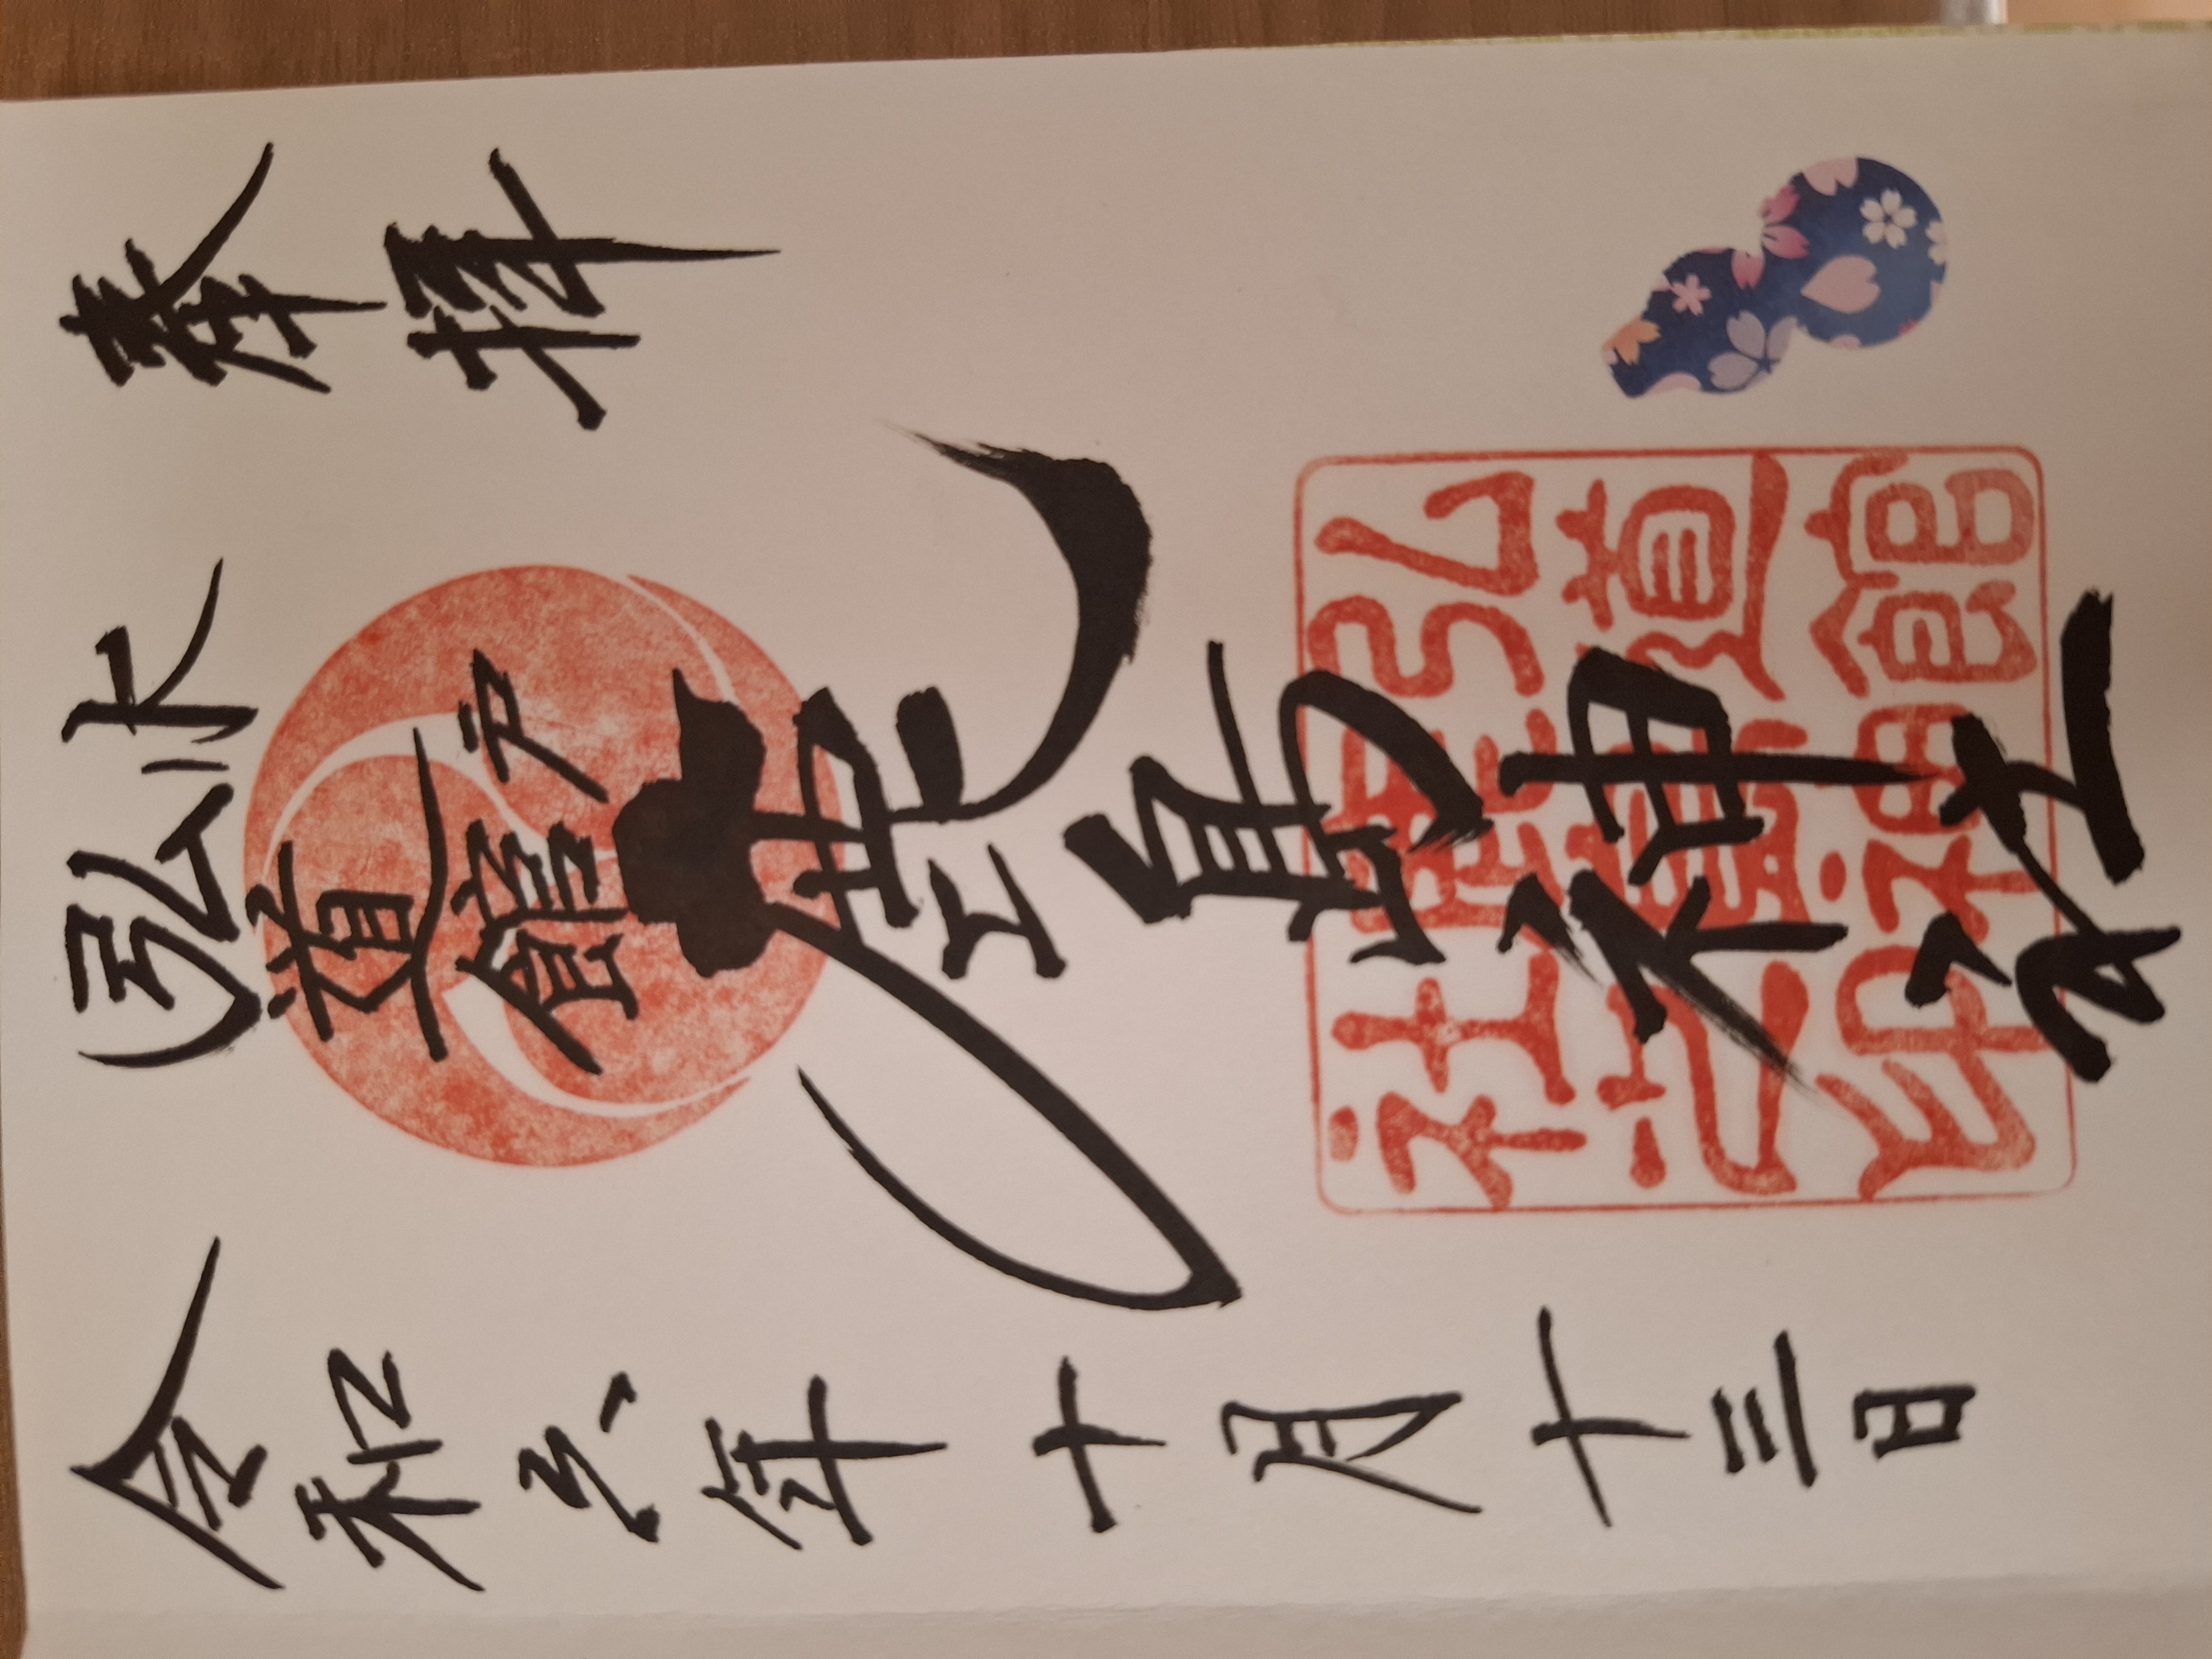 奉拝
水戸
弘道館
鹿島神社
弘道館
鹿島神
社之印
令和六年十月十三日